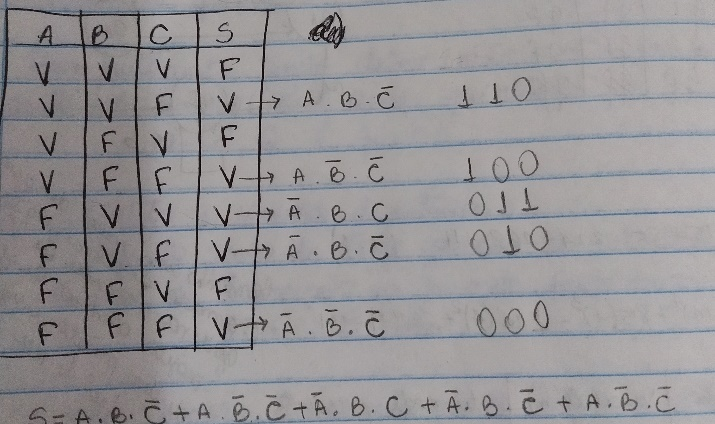 A B C S
V V V F
V V F V → A . B . C̅ 1 1 0
V F V F
V F F V → A . B̅ . C̅ 1 0 0
F V V V → A̅ . B . C 0 1 1
F V F V → A̅ . B . C̅ 0 1 0
F F V F
F F F V → A̅ . B̅ . C̅ 0 0 0
S = A . B . C̅ + A . B̅ . C̅ + A̅ . B . C + A̅ . B . C̅ + A . B̅ . C̅